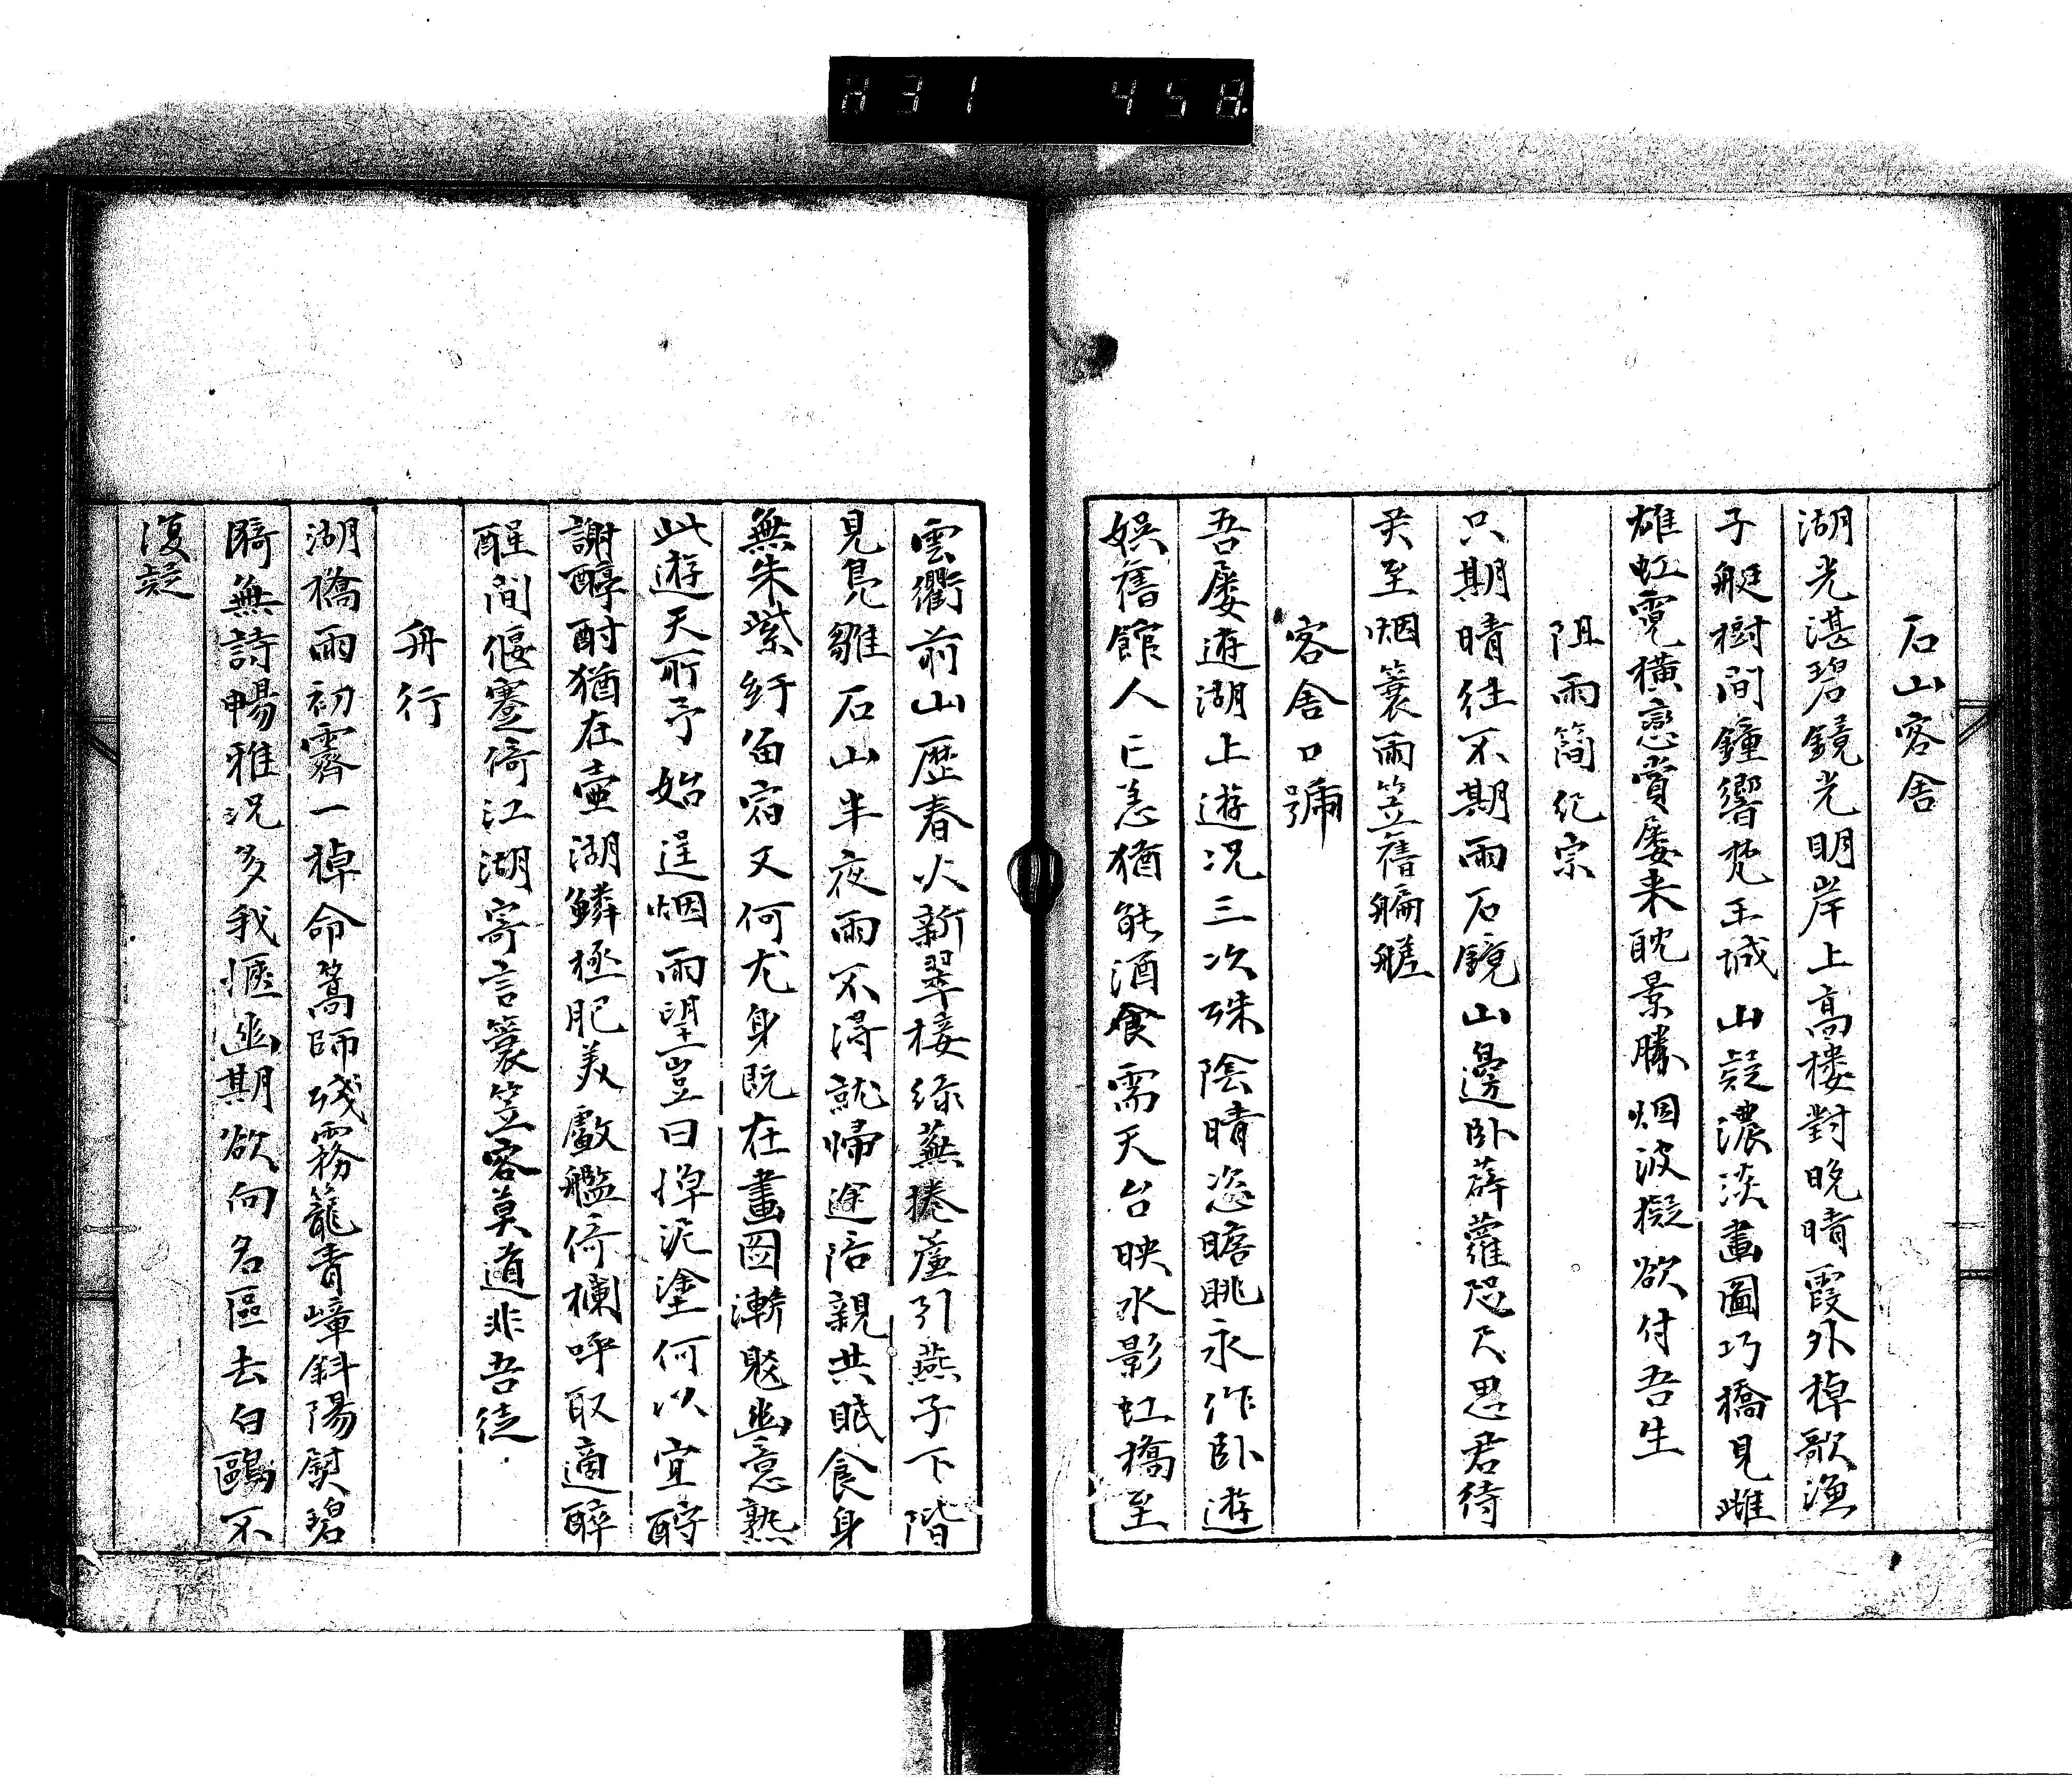 石山客舍
湖光湛碧鏡光明岸上高樓對晚晴霞外棹歌漁
子艇樹間鐘響梵王城山疑濃淡畫圖巧橋見雌
雄虹霓橫戀賞屡来耽景勝烟波擬欲付吾生
阻雨簡紀宗
只期晴往不期雨石鏡山邊卧薜蘿咫尺思君待
天至烟簑雨笠舊艑艖
客舍口號
吾屡遊湖上遊况三次殊陰晴恣瞻眺永作卧遊
娯舊館人已恙猶能酒食需天台映水影虹橋至
雲衢前山歴春火新翠接綠蕪捲蘆引燕子下階
見鳧雛石山半夜雨不得就帰途陪親共眠食身
無朱紫紆留宿又何尤身既在畫圖漸覚幽意熟
此遊天所予始逞烟雨望豈曰憚泥塗何以宜酹
謝醇酎猶在壷湖鱗極肥美戯艦倚欄呼取適醉
醒間偃蹇倚江湖寄言簑笠客莫道非吾徒
舟行
湖橋雨初霽一棹命篙師残霧籠青嶂斜陽熨碧
漪無詩暢雅况多我愜幽期欲向名區去白鷗不
復疑
831 458